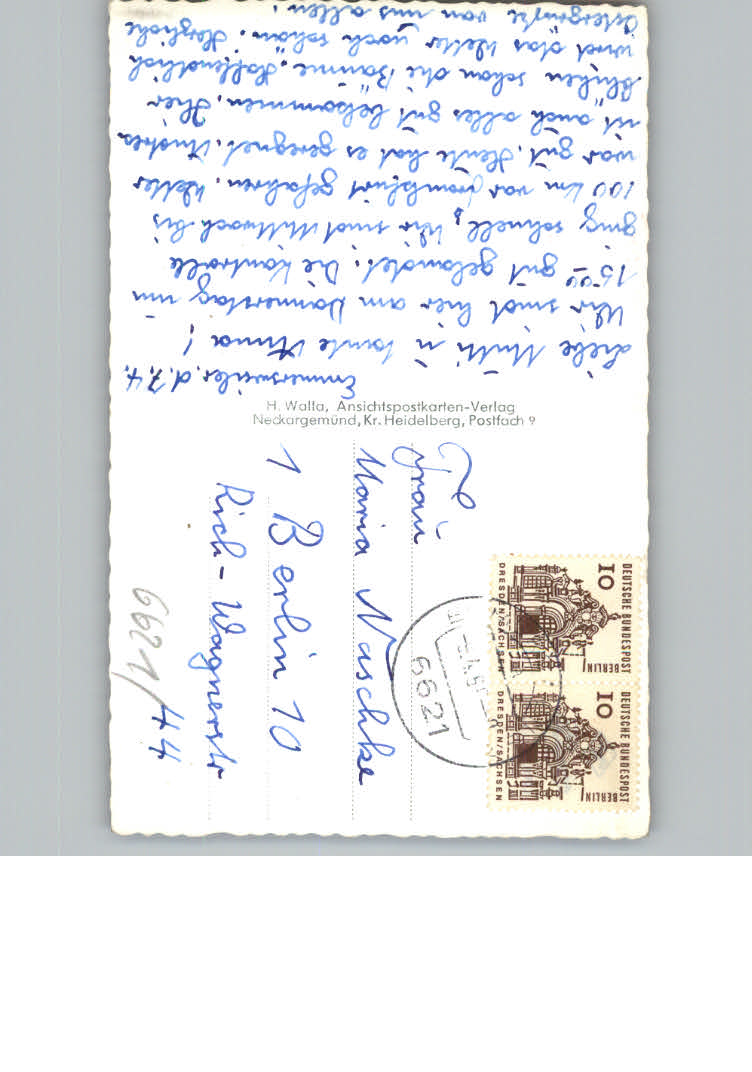 Emmersweiler, d. 7.4.
Liebe Mutti u. Tante Anna!
Wir sind hier am Donnerstag um
15 00 gut gelandet. Die Kontrolle
ging schnell, wir sind Mittwoch bis
100 km vor Frankfurt gefahren. Wetter
war gut. Heute hat es geregnet. Andrea
ist auch alles gut bekommen. Hier
blühen schon die Bäume. Hoffentlich
wird das Wetter noch schön. Herzliche
Ostergrüße von uns allen!
H. Walla, Ansichtspostkarten-Verlag
Neckargemünd, Kr. Heidelberg, Postfach 9
Frau
Maria Naschke
1 Berlin 10
Rich-Wagnerstr
44
6621/
DEUTSCHE BUNDESPOST
BERLIN
10
DRESDEN/SACHSEN
DEUTSCHE BUNDESPOST
BERLIN
10
DRESDEN/SACHSEN
6621